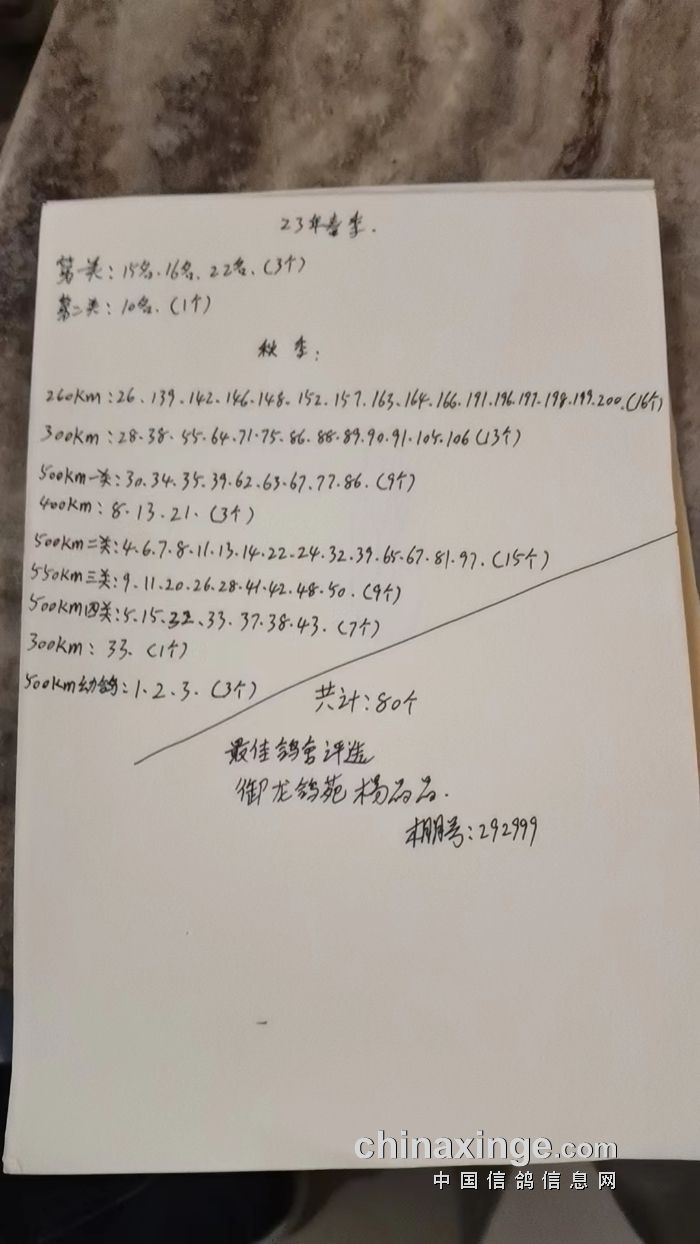 23年春季.
第一类:15名、16名、22名、(3个)
第二类:10名、(1个)
秋季:
260km:26、139、142、146、148、152、157、163、164、166、191、196、197、198、199、200、(16个)
300km:28、38、55、64、71、75、86、88、89、90、91、105、106(13个)
500km一类:30、34、35、39、62、63、67、77、86、(9个)
400km:8、13、21、(3个)
500km二类:4、6、7、8、11、13、14、22、24、32、39、65、67、81、97、(15个)
550km三类:9、11、20、26、28、41、42、48、50、(9个)
500km四类:5、15、32、33、37、38、43、(7个)
300km:33、(1个)
500km幼鸽:1、2、3、(3个)
共计:80个
最佳鸽舍评选
御龙鸽苑 杨
棚号:292999
chinaxinge.com
中国信鸽信息网